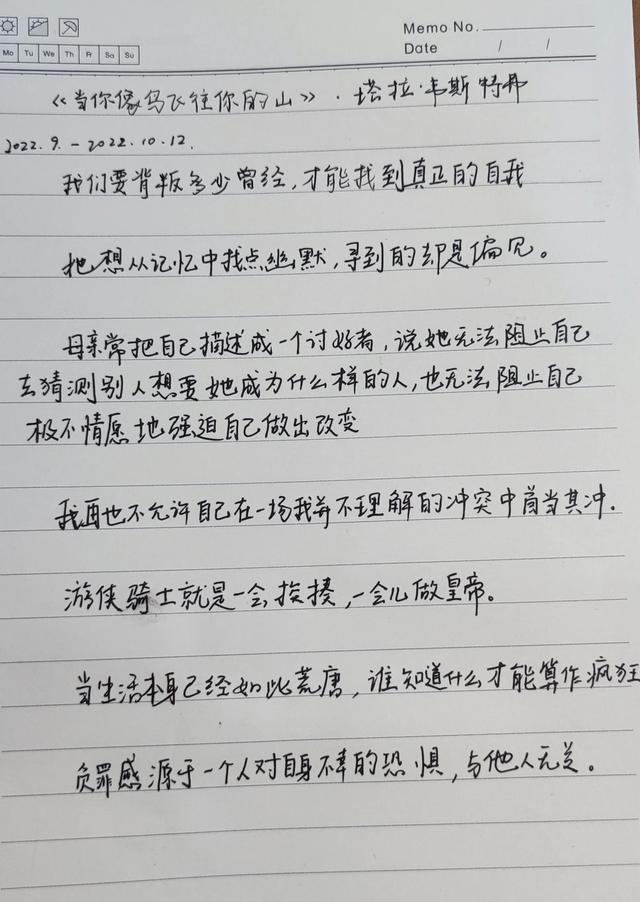 Memo No.
Mo Tu We Th Fr Sa Su
Date / /
《当你像鸟飞往你的山》·塔拉·韦斯特弗
2022.9.-2022.10.12.
我们要背叛多少曾经,才能找到真正的自我
他想从记忆中找点幽默,寻到的却是偏见。
母亲常把自己描述成一个讨好者,说她无法阻止自己
去猜测别人想要她成为什么样的人,也无法阻止自己
极不情愿地强迫自己做出改变
我再也不允许自己在一场我并不理解的冲突中首当其冲.
游侠骑士就是一会挨揍,一会儿做皇帝。
当生活本身已经如此荒唐,谁知道什么才能算作疯狂
负罪感源于一个人对自身不幸的恐惧,与他人无关。